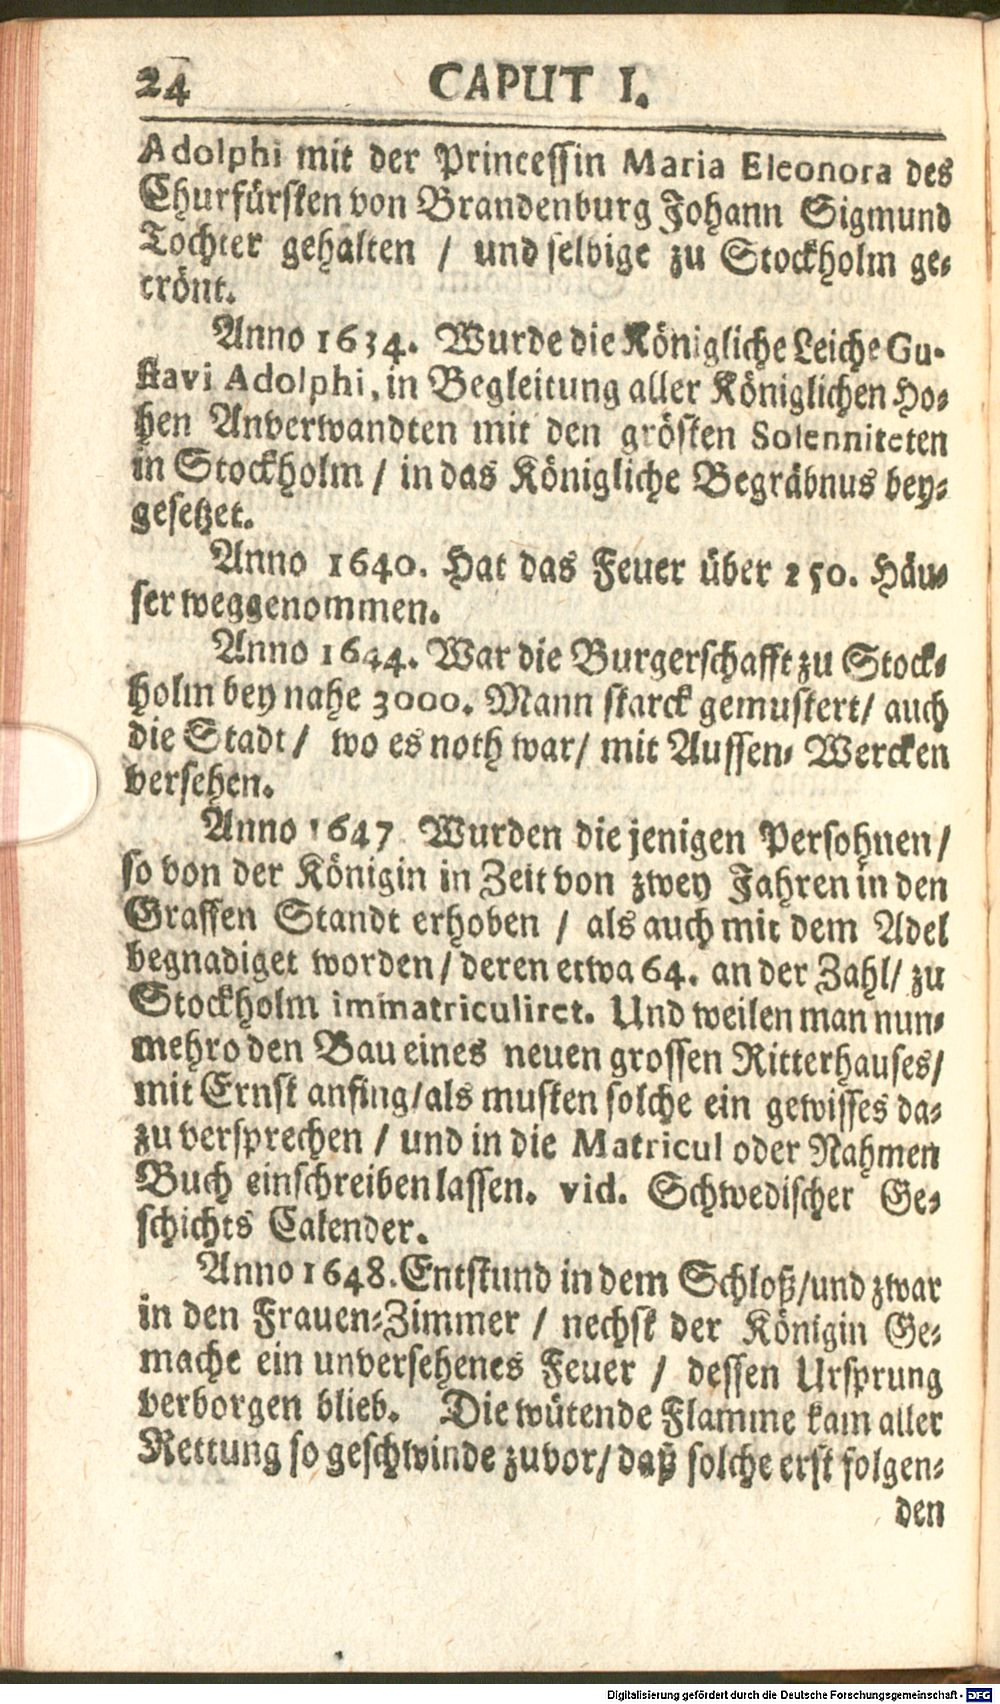 24 CAPUT I.
Adolphi mit der Princessin Maria Eleonora des
Churfürsten von Brandenburg Johann Sigmund
Tochter gehalten / und selbige zu Stockholm ge-
crönt.
Anno 1634. Wurde die Königliche Leiche Gu-
stavi Adolphi, in Begleitung aller Königlichen Ho-
hen Anverwandten mit den grösten Solenniteten
in Stockholm / in das Königliche Begräbnus bey-
gesetzet.
Anno 1640. Hat das Feuer über 250. Häu-
ser weggenommen.
Anno 1644. War die Burgerschafft zu Stock-
holm bey nahe 3000. Mann starck gemustert/ auch
die Stadt / wo es noth war/ mit Aussen- Wercken
versehen.
Anno 1647 Wurden die jenigen Persohnen /
so von der Königin in Zeit von zwey Jahren in den
Graffen Standt erhoben / als auch mit dem Adel
begnadiget worden / deren etwa 64. an der Zahl/ zu
Stockholm immatriculiret. Und weilen man nun-
mehro den Bau eines neuen grossen Ritterhauses/
mit Ernst anfing/als musten solche ein gewisses da-
zu versprechen / und in die Matricul oder Nahmen
Buch einschreiben lassen. vid. Schwedischer Ge-
schichts Calender.
Anno 1648. Entstund in dem Schloß/und zwar
in den Frauen-Zimmer / nechst der Königin Ge-
mache ein unversehenes Feuer / dessen Ursprung
verborgen blieb. Die wütende Flamme kam aller
Rettung so geschwinde zuvor/ daß solche erst folgen-
den
Digitalisierung gefördert durch die Deutsche Forschungsgemeinschaft - DFG